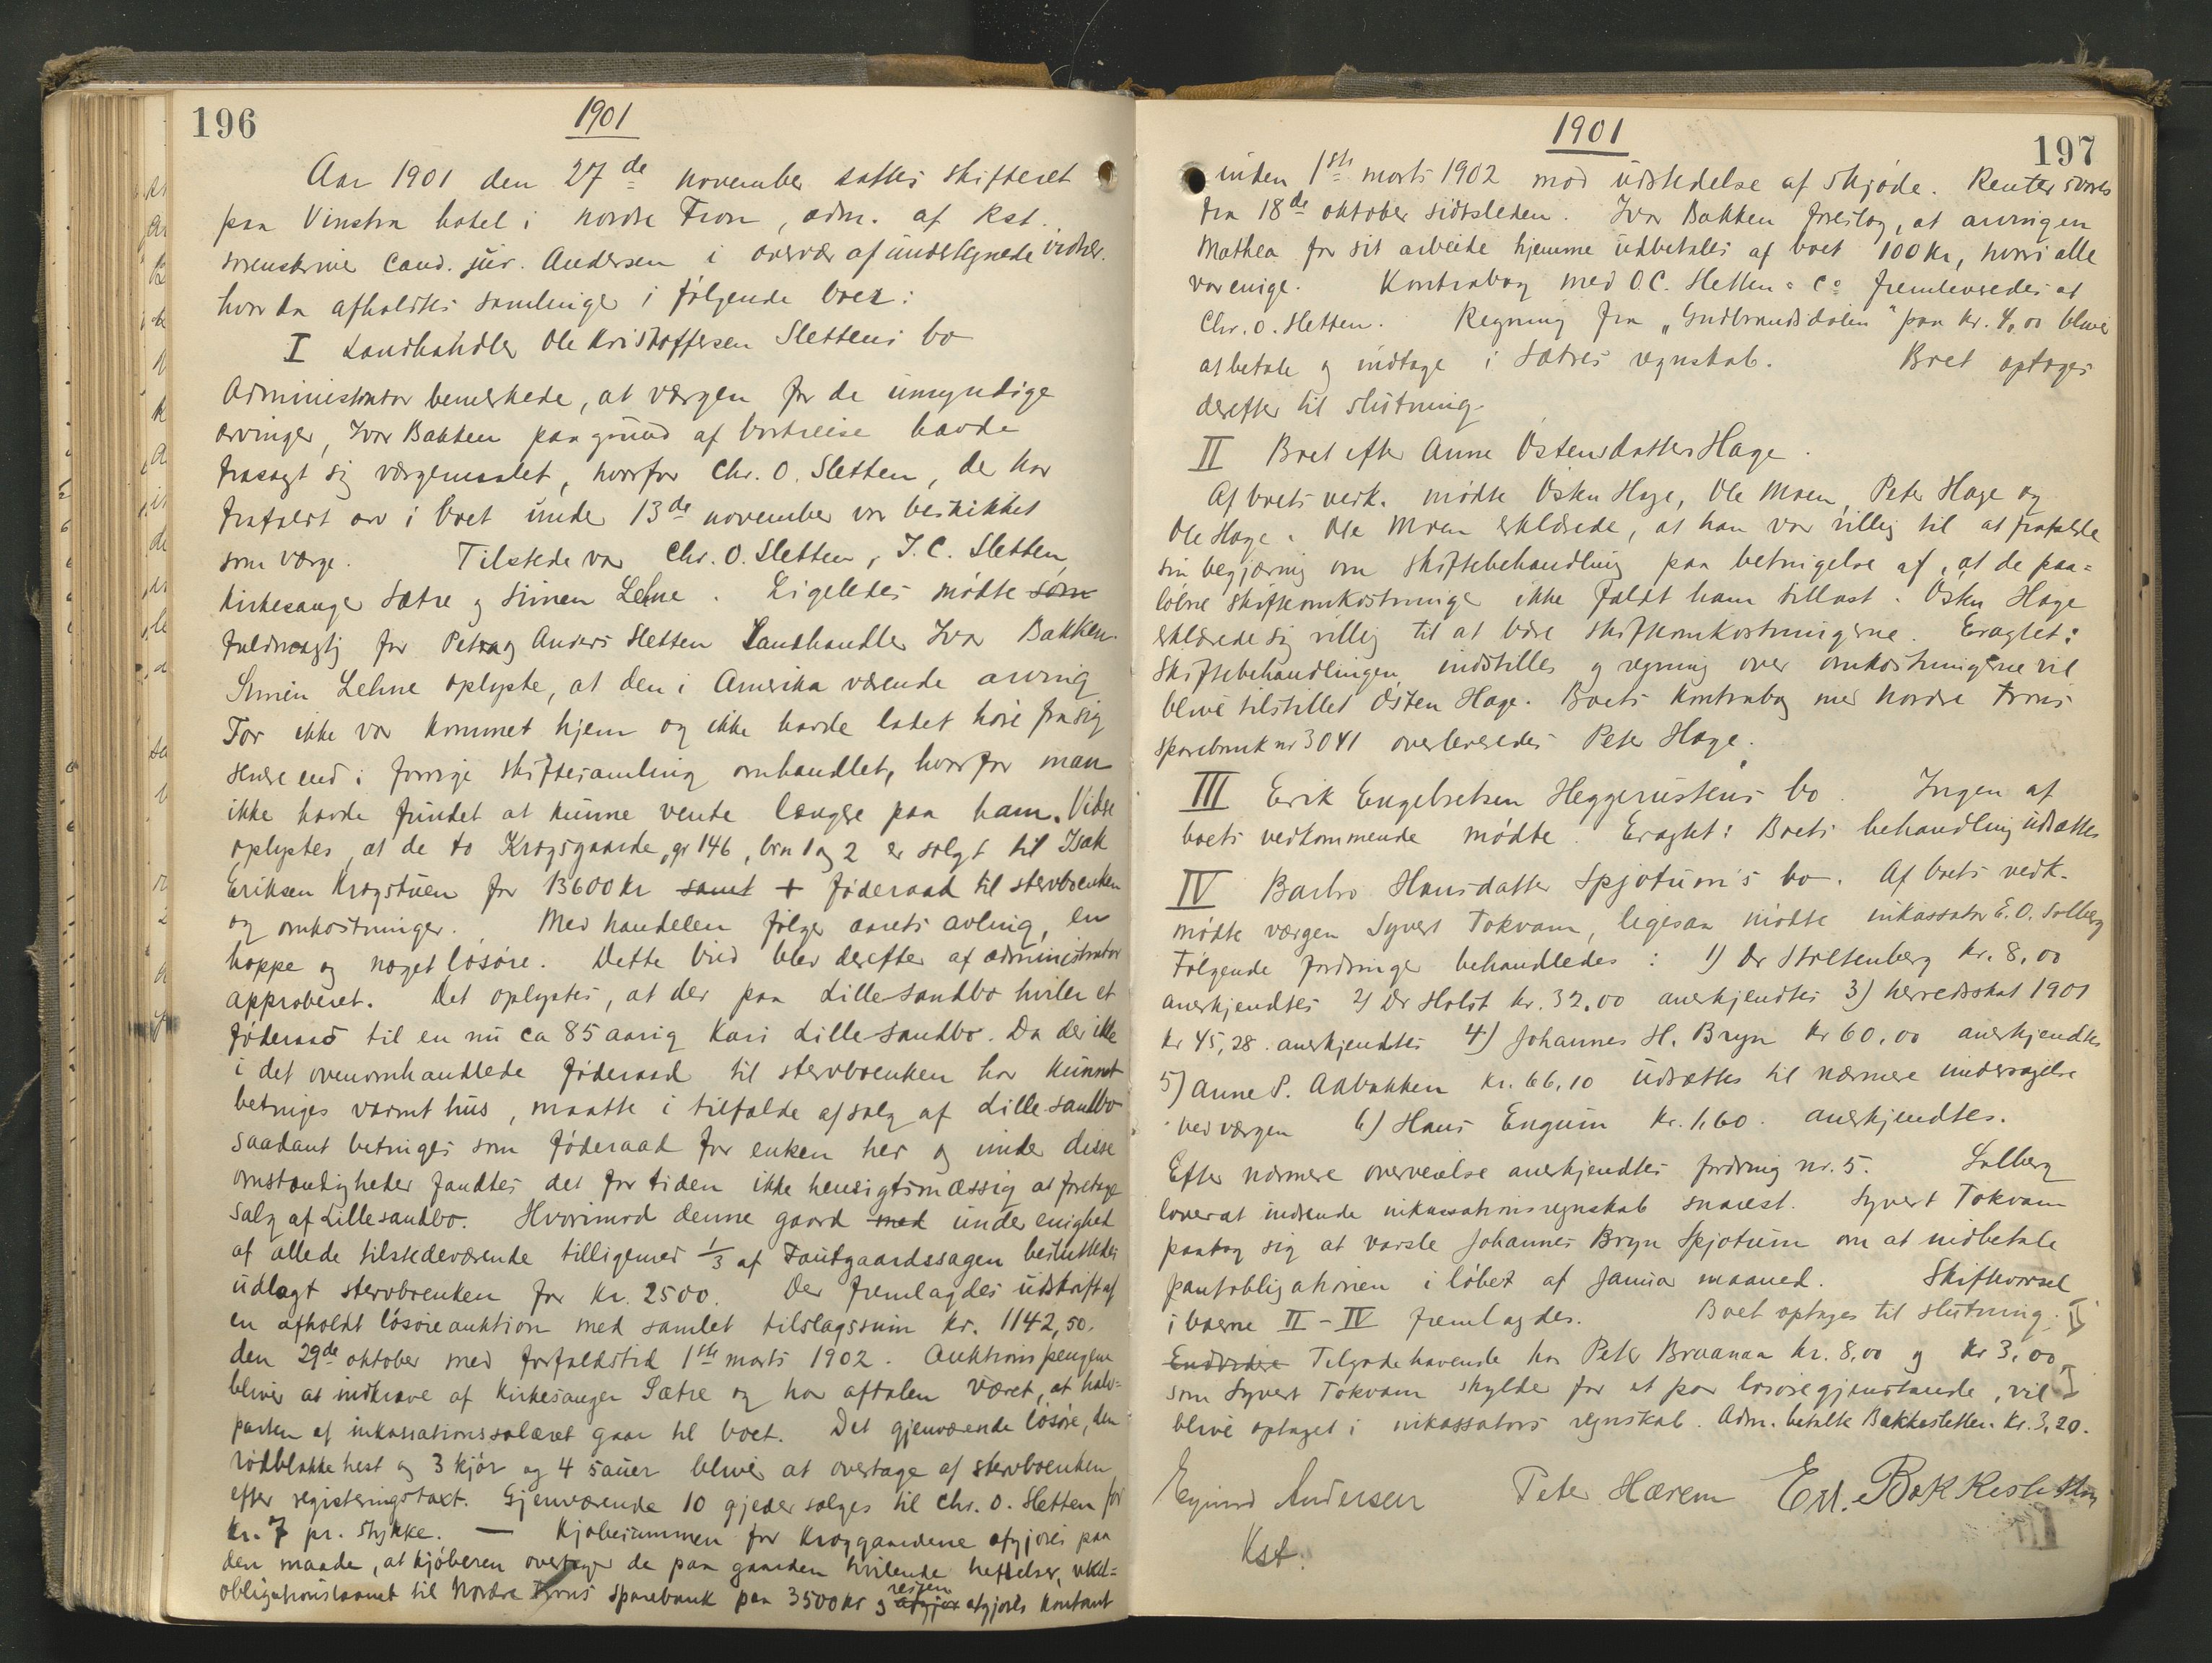 196
1901
Aar 1901 den 27de november sattes skifteret
paa Vinstra hotel i nordre Fron, adm. af kst.
sorenskriver cand. jur. Andersen i overvær af undertegnede vidner.
hvor da afholdtes samlinger i følgende boer:
I Landhandler Ole Kristoffersen Slettens bo
Administrator bemerkede, at værgen for de umyndige
arvinger, Ivar Bakken paa grund af bortreise havde
frasagt sig værgemaalet, hvorfor Chr. O. Sletten, der har
frafaldt arv i boet under 13de november var beskikket
som værge. Tilstede var Chr. O. Sletten, J. C. Sletten,
kirkesanger Sætre og Simen Lehne. Ligeledes mødte som
fuldmægtig for Petra og Anders Sletten Landhandler Ivar Bakken.
Simen Lehne oplyste, at den i Amerika værende arving
Tor ikke var kommet hjem og ikke havde ladet høre fra sig
videre end i forrige skiftesamling omhandlet, hvorfor man
ikke havde fundet at kunne vente længre paa ham. Vidre
oplystes, at de to Krogsgaarde, gr 146, brn 1 og 2 er solgt til Isak
Eriksen Krogstuen for 13600 kr samt + føderaad til stervboenken
og omkostninger. Med handelen følger aarets avling, en
hoppe og noget løsøre. Dette bud blev derefter af administrator
approberet. Det oplystes, at der paa Lillesandbo hviler et
føderaad til en nu ca 85 aarig Kari Lillesandbo. Da der ikke
i det ovenomhandlede føderaad til stervboenken har kunnet
betinges varmt hus, maatte i tilfælde af salg af Lillesandbo
saadant betinges som føderaad for enken her og under disse
omstændigheder fandtes det for tiden ikke hensigtsmæssig at foretage
salg af Lillesandbo. Hvorimod denne gaard med under enighed
af alle de tilstedeværende tilligemed 1/3 af Fautgaardssagen besluttedes
udlagt stervboenken for kr. 2500. Der fremlagdes udskrift af
en afholdt løsøreauktion med samlet tilslagssum kr. 1142,50.
den 29de oktober med forfaldstid 1ste marts 1902. Auktionspengene
bliver at indkræve af Kirkesanger Sætre og har aftalen været, at halv=
parten af inkassationssalæret gaar til boet. Det gjenværende løsøre, den
rødblakke hest og 3 kjør og 4 sauer bliver at overtage af stervboenken
efter registreringstaxt. Gjenværende 10 gjeder sælges til Chr. O. Sletten for
kr. 7 pr. stykke. — Kjøbesummen for Kroggaardene afgjøres paa
den maade, at kjøberen overtager de paa gaarden hvilende heftelser,
obligationslaanet til Nordre Frons sparebank paa 3500 kr og afgjør resten afgjøres kontant
1901
197
inden 1ste marts 1902 mod udstedelse af skjøde. Renter svares
fra 18de oktober sidstleden. Ivar Bakken foreslog, at arvingen
Mathea for sit arbeide hjemme udbetales af boet 100 kr, hvori alle
var enige. Kontrabog med O. C. Sletten & Co fremleveredes af
Chr. O. Sletten. Regning fra „Gudbrandsdalen" paa kr. 4,00 bliver
at betale og indtage i Sætres regnskab. Boet optages
derefter til slutning.
II Boet efter Anne Østensdatter Hage.
Af boets vedk. mødte Østen Hage, Ole Moen, Peter Hage og
Ole Hage. Ole Moen erklærede, at han var villig til at frafalde
sin begjæring om skiftebehandling paa betingelse af, at de paa=
løbne skifteomkostninger ikke faldt ham tillast. Østen Hage
erklærede sig villig til at bære skifteomkostningerne. Eragtet:
Skiftebehandlingen indstilles og regning over omkostningerne vil
blive tilstillet Østen Hage. Boets kontrabog med Nordre Frons
Sparebank nr 3041 overleveredes Peter Hage.
III Erik Engebretsen Heggerustens bo. Ingen af
boets vedkommende mødte. Eragtet: Boets behandling udsættes
IV Barbro Hansdatter Spjotum's bo. Af boets vedk.
mødte værgen Syvert Tokvam, ligesaa mødte inkassator E. O. Solberg
Følgende fordringer behandledes: 1) Dr Stoltenberg kr. 8,00
anerkjendtes 2) Dr Holst kr. 32.00 anerkjendtes 3) herredsskat 1901
kr 45,28. anerkjendtes 4) Johannes H. Bryn kr 60,00 anerkjendtes
5) Anne P. Aabakken kr. 66,10 udsættes til nærmere undersøgelse
ved værgen 6) Hans Engum kr. 1,60. anerkjendtes.
Efter nærmere overveielse anerkjendtes fordring nr. 5. Solberg
lover at indsende inkassationsregnskab snarest. Syvert Tokvam
paatog sig at varsle Johannes Bryn Spjotum om at indbetale
pantobligationen i løbet af januar maaned. Skiftevarsel
i boerne II – IV fremlagdes. Boet optages til slutning.
Endvidere Tilgodehavende hos Peter Braanaa kr. 8,00 og kr 3,00
som Syvert Tokvam skylder for et par løsøregjenstande, vil
blive optaget i inkassators regnskab. Adm. betalte Bakkesletten kr. 3,20.
Eyvind Andersen Peter Hærem E. M. Bakkesletten
Kst.